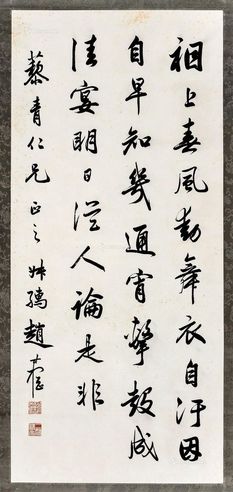 裀上春風動舞衣自汙因
自早知幾通宵擊鼓成
佳宴明日從人論是非
藜青仁兄正之 叔孺趙